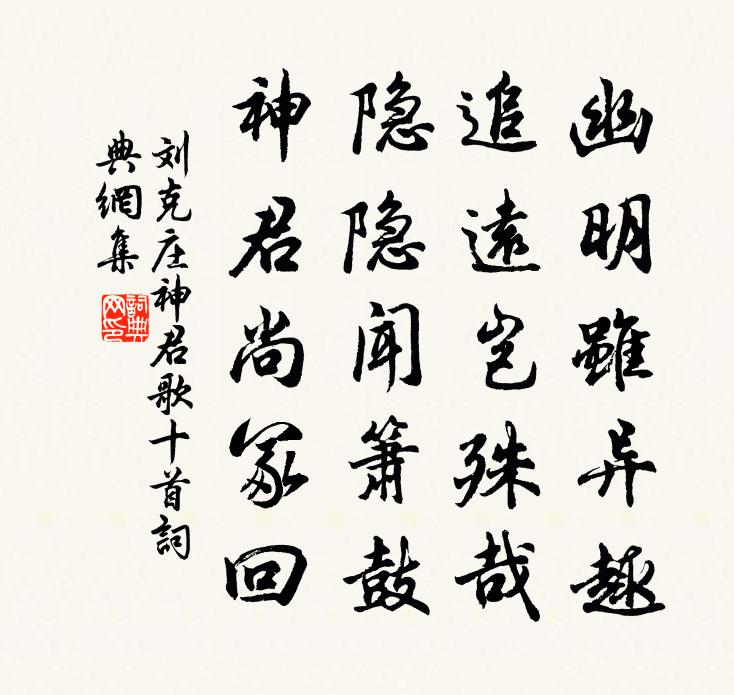 幽明雖异趣
追遠岂殊哉
隐隐闻箫鼓
神君尚冢回
刘克庄神君歌十首詞
典網集
詞典
网印